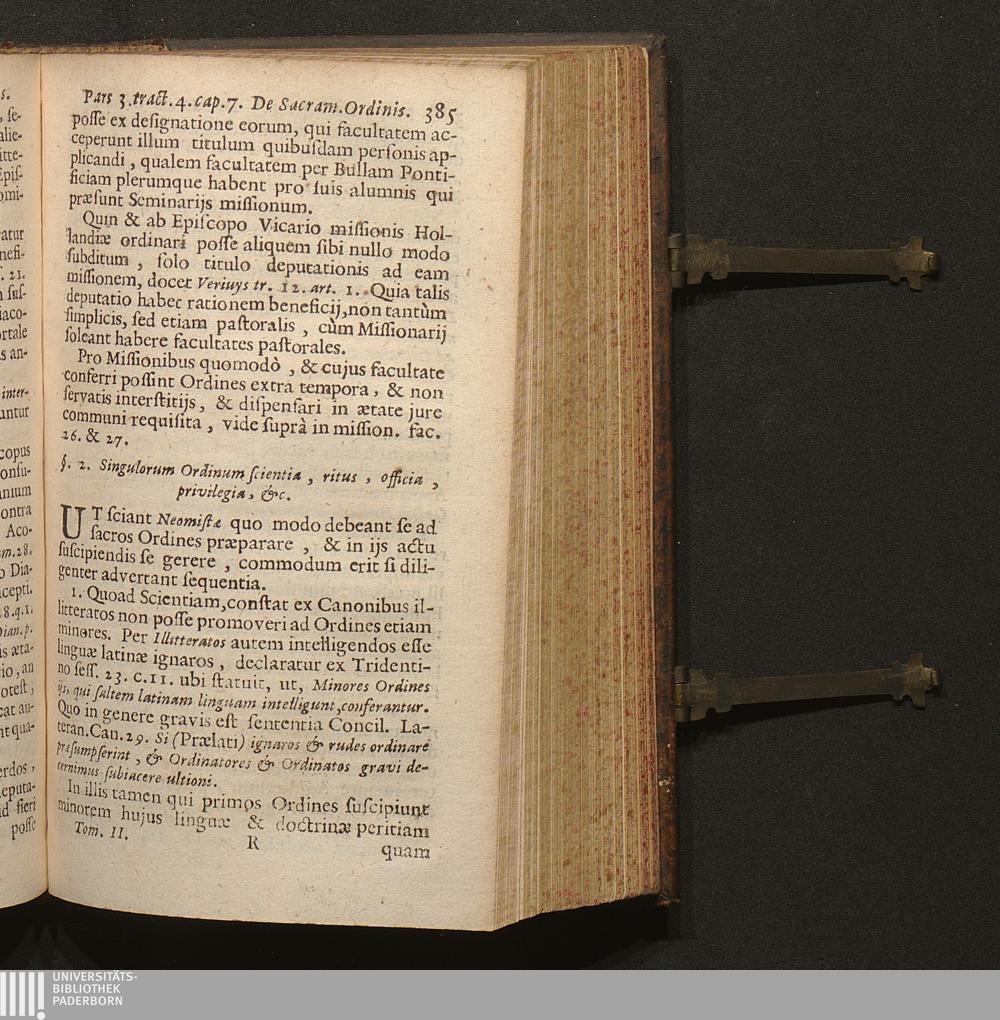 Pars 3.tract.4.cap.7. De Sacram.Ordinis. 385
posse ex designatione eorum, qui facultatem ac-
ceperunt illum titulum quibusdam personis ap-
plicandi, qualem facultatem per Bullam Ponti-
ficiam plerumque habent pro suis alumnis qui
præsunt Seminarijs missionum.
Quin & ab Episcopo Vicario missionis Hol-
landiæ ordinari posse aliquem sibi nullo modo
subditum, solo titulo deputationis ad eam
missionem, docet Veriuys tr. 12. art. 1. Quia talis
deputatio habet rationem beneficij, non tantùm
simplicis, sed etiam pastoralis, cùm Missionarij
soleant habere facultates pastorales.
Pro Missionibus quomodò, & cujus facultate
conferri possint Ordines extra tempora, & non
servatis interstitijs, & dispensari in ætate jure
communi requisita, vide suprà in mission. fac.
26. & 27.
§. 2. Singulorum Ordinum scientia, ritus, officia,
privilegia, &c.
UT sciant Neomistæ quo modo debeant se ad
sacros Ordines præparare, & in ijs actu
suscipiendis se gerere, commodum erit si dili-
genter advertant sequentia.
1. Quoad Scientiam, constat ex Canonibus il-
litteratos non posse promoveri ad Ordines etiam
minores. Per Illitteratos autem intelligendos esse
linguæ latinæ ignaros, declaratur ex Tridenti-
no sess. 23. c.11. ubi statuit, ut, Minores Ordines
ijs, qui saltem latinam linguam intelligunt, conferantur.
Quo in genere gravis est sententia Concil. La-
teran.Can.29. Si (Prælati) ignaros & rudes ordinare
præsumpserint, & Ordinatores & Ordinatos gravi de-
cernimus subiacere ultioni.
In illis tamen qui primos Ordines suscipiunt
minorem hujus linguæ & doctrinæ peritiam
Tom. II. R quam
UNIVERSITÄTS-
BIBLIOTHEK
PADERBORN